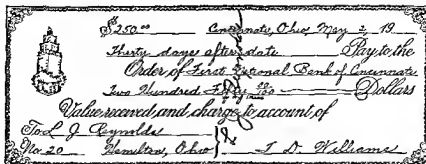 $250.00 Cincinnati, Ohio, May 2, 19
Thirty days after date Pay to the
Order of First National Bank of Cincinnati
Two Hundred Fifty Dollars
Value received and charge to account of
To L. J. Reynolds
No. 20 Hamilton, Ohio J. D. Williams